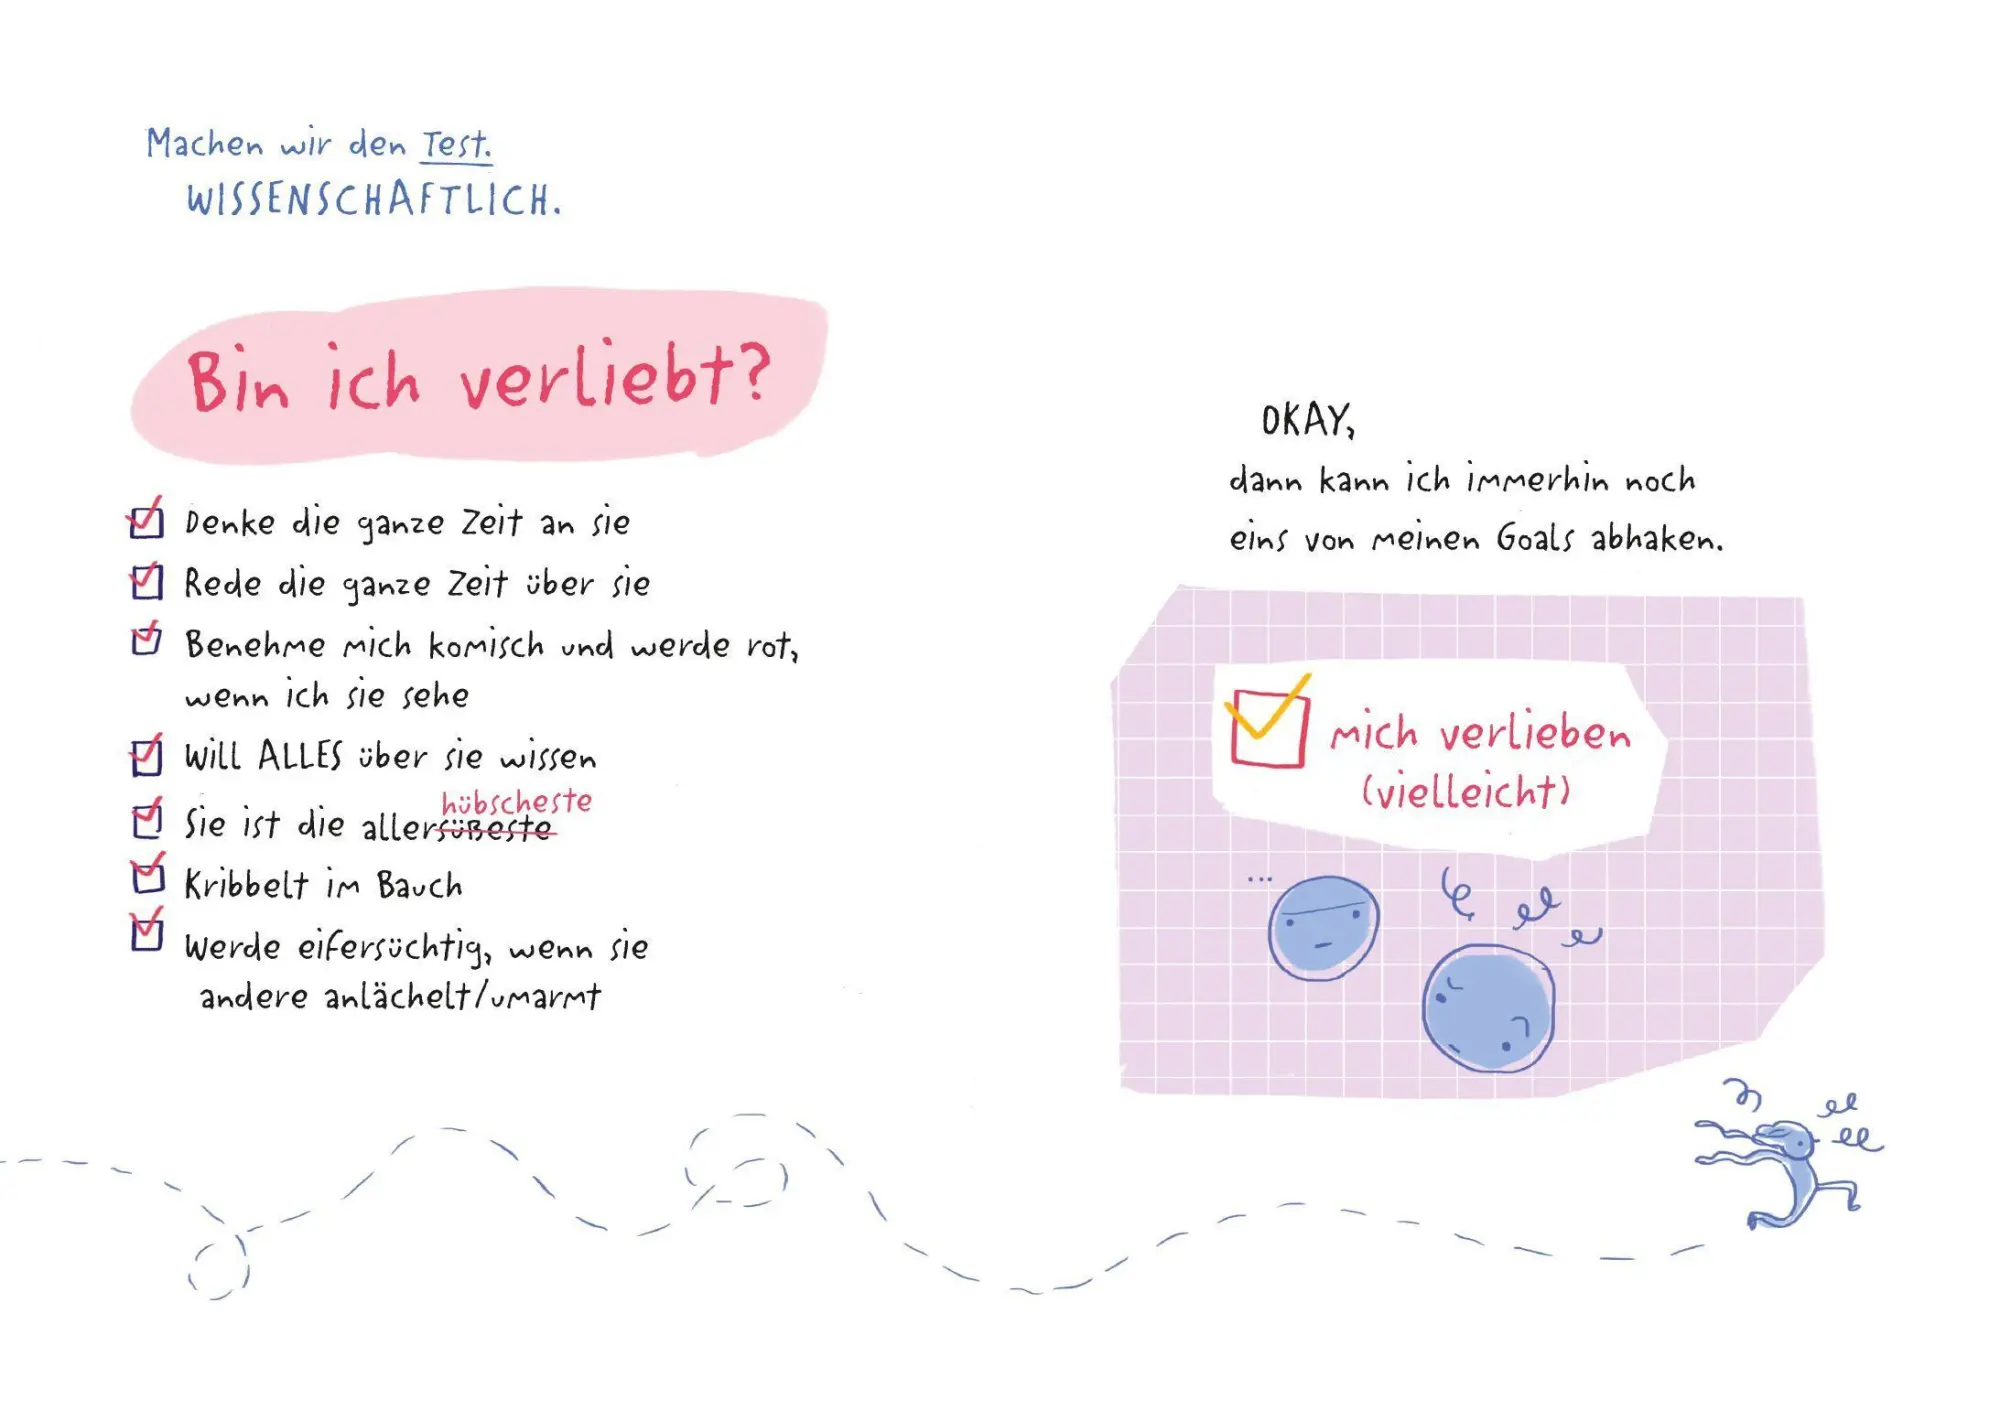 Machen wir den Test.
WISSENSCHAFTLICH.
Bin ich verliebt?
Denke die ganze Zeit an sie
Rede die ganze Zeit über sie
Benehme mich komisch und werde rot,
wenn ich sie sehe
Will ALLES über sie wissen
hübscheste
Sie ist die allersüßeste
Kribbelt im Bauch
Werde eifersüchtig, wenn sie
andere anlächelt/umarmt
OKAY,
dann kann ich immerhin noch
eins von meinen Goals abhaken.
mich verlieben
(vielleicht)
...